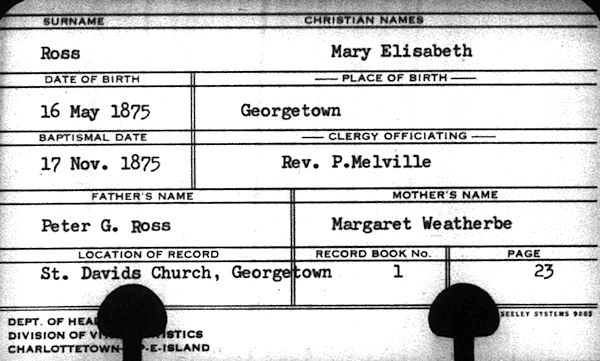 SURNAME CHRISTIAN NAMES
Ross Mary Elisabeth
DATE OF BIRTH PLACE OF BIRTH
16 May 1875 Georgetown
BAPTISMAL DATE CLERGY OFFICIATING
17 Nov. 1875 Rev. P.Melville
FATHER'S NAME MOTHER'S NAME
Peter G. Ross Margaret Weatherbe
LOCATION OF RECORD RECORD BOOK No. PAGE
St. Davids Church, Georgetown 1 23
SEELEY SYSTEMS
DEPT. OF
DIVISION OF
CHARLOTTETOWN P-E-ISLAND